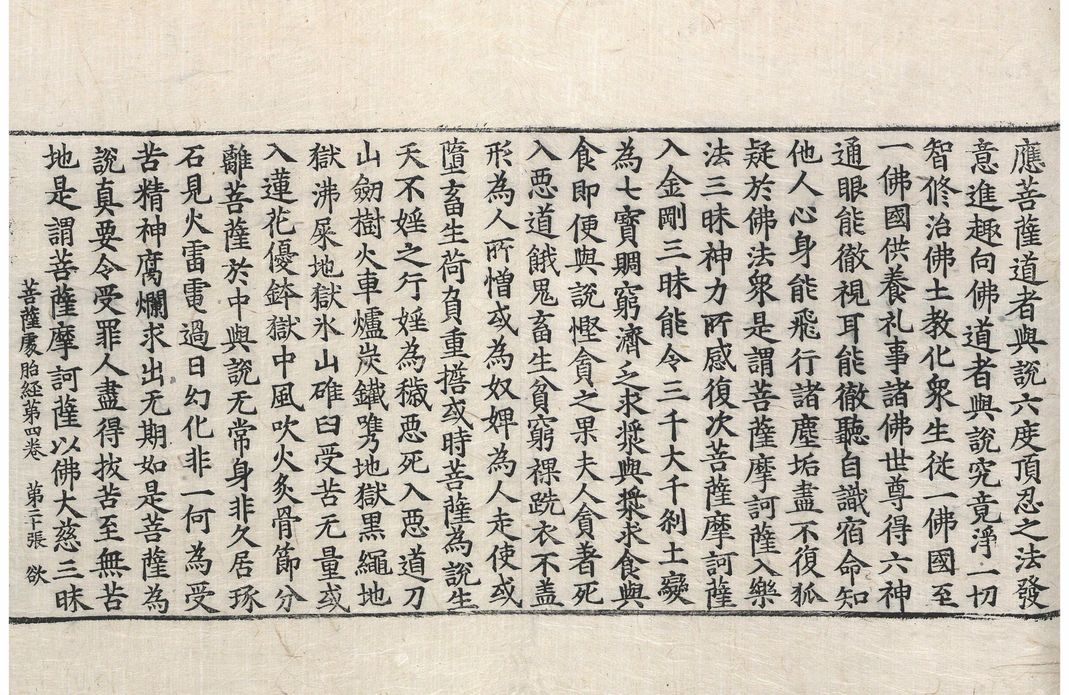 應菩薩道者與說六度頂忍之法發
意進趣向佛道者與說究竟淨一切
智修治佛土教化衆生從一佛國至
一佛國供養礼事諸佛世尊得六神
通眼能徹視耳能徹聽自識宿命知
他人心身能飛行諸塵垢盡不復狐
疑於佛法衆是謂菩薩摩訶薩入樂
法三昧神力所感復次菩薩摩訶薩
入金剛三昧能令三千大千刹土變
為七寶賙窮濟之求漿與漿求食與
食即便與說慳貪之果夫人貪者死
入惡道餓鬼畜生貧窮裸跣衣不盖
形為人所憎或為奴婢為人走使或
墮畜生荷負重擔或時菩薩為說生
天不婬之行婬為穢惡死入惡道刀
山劒樹火車爐炭鐵㘒地獄黑繩地
獄沸屎地獄氷山碓臼受苦无量或
入蓮花優鉢獄中風吹火炙骨節分
離菩薩於中與說无常身非久居琢
石見火雷電過日幻化非一何為受
苦精神腐爛求出无期如是菩薩為
說真要令受罪人盡得拔苦至無苦
地是謂菩薩摩訶薩以佛大慈三昧
菩薩處胎經第四卷 第二十張 欲